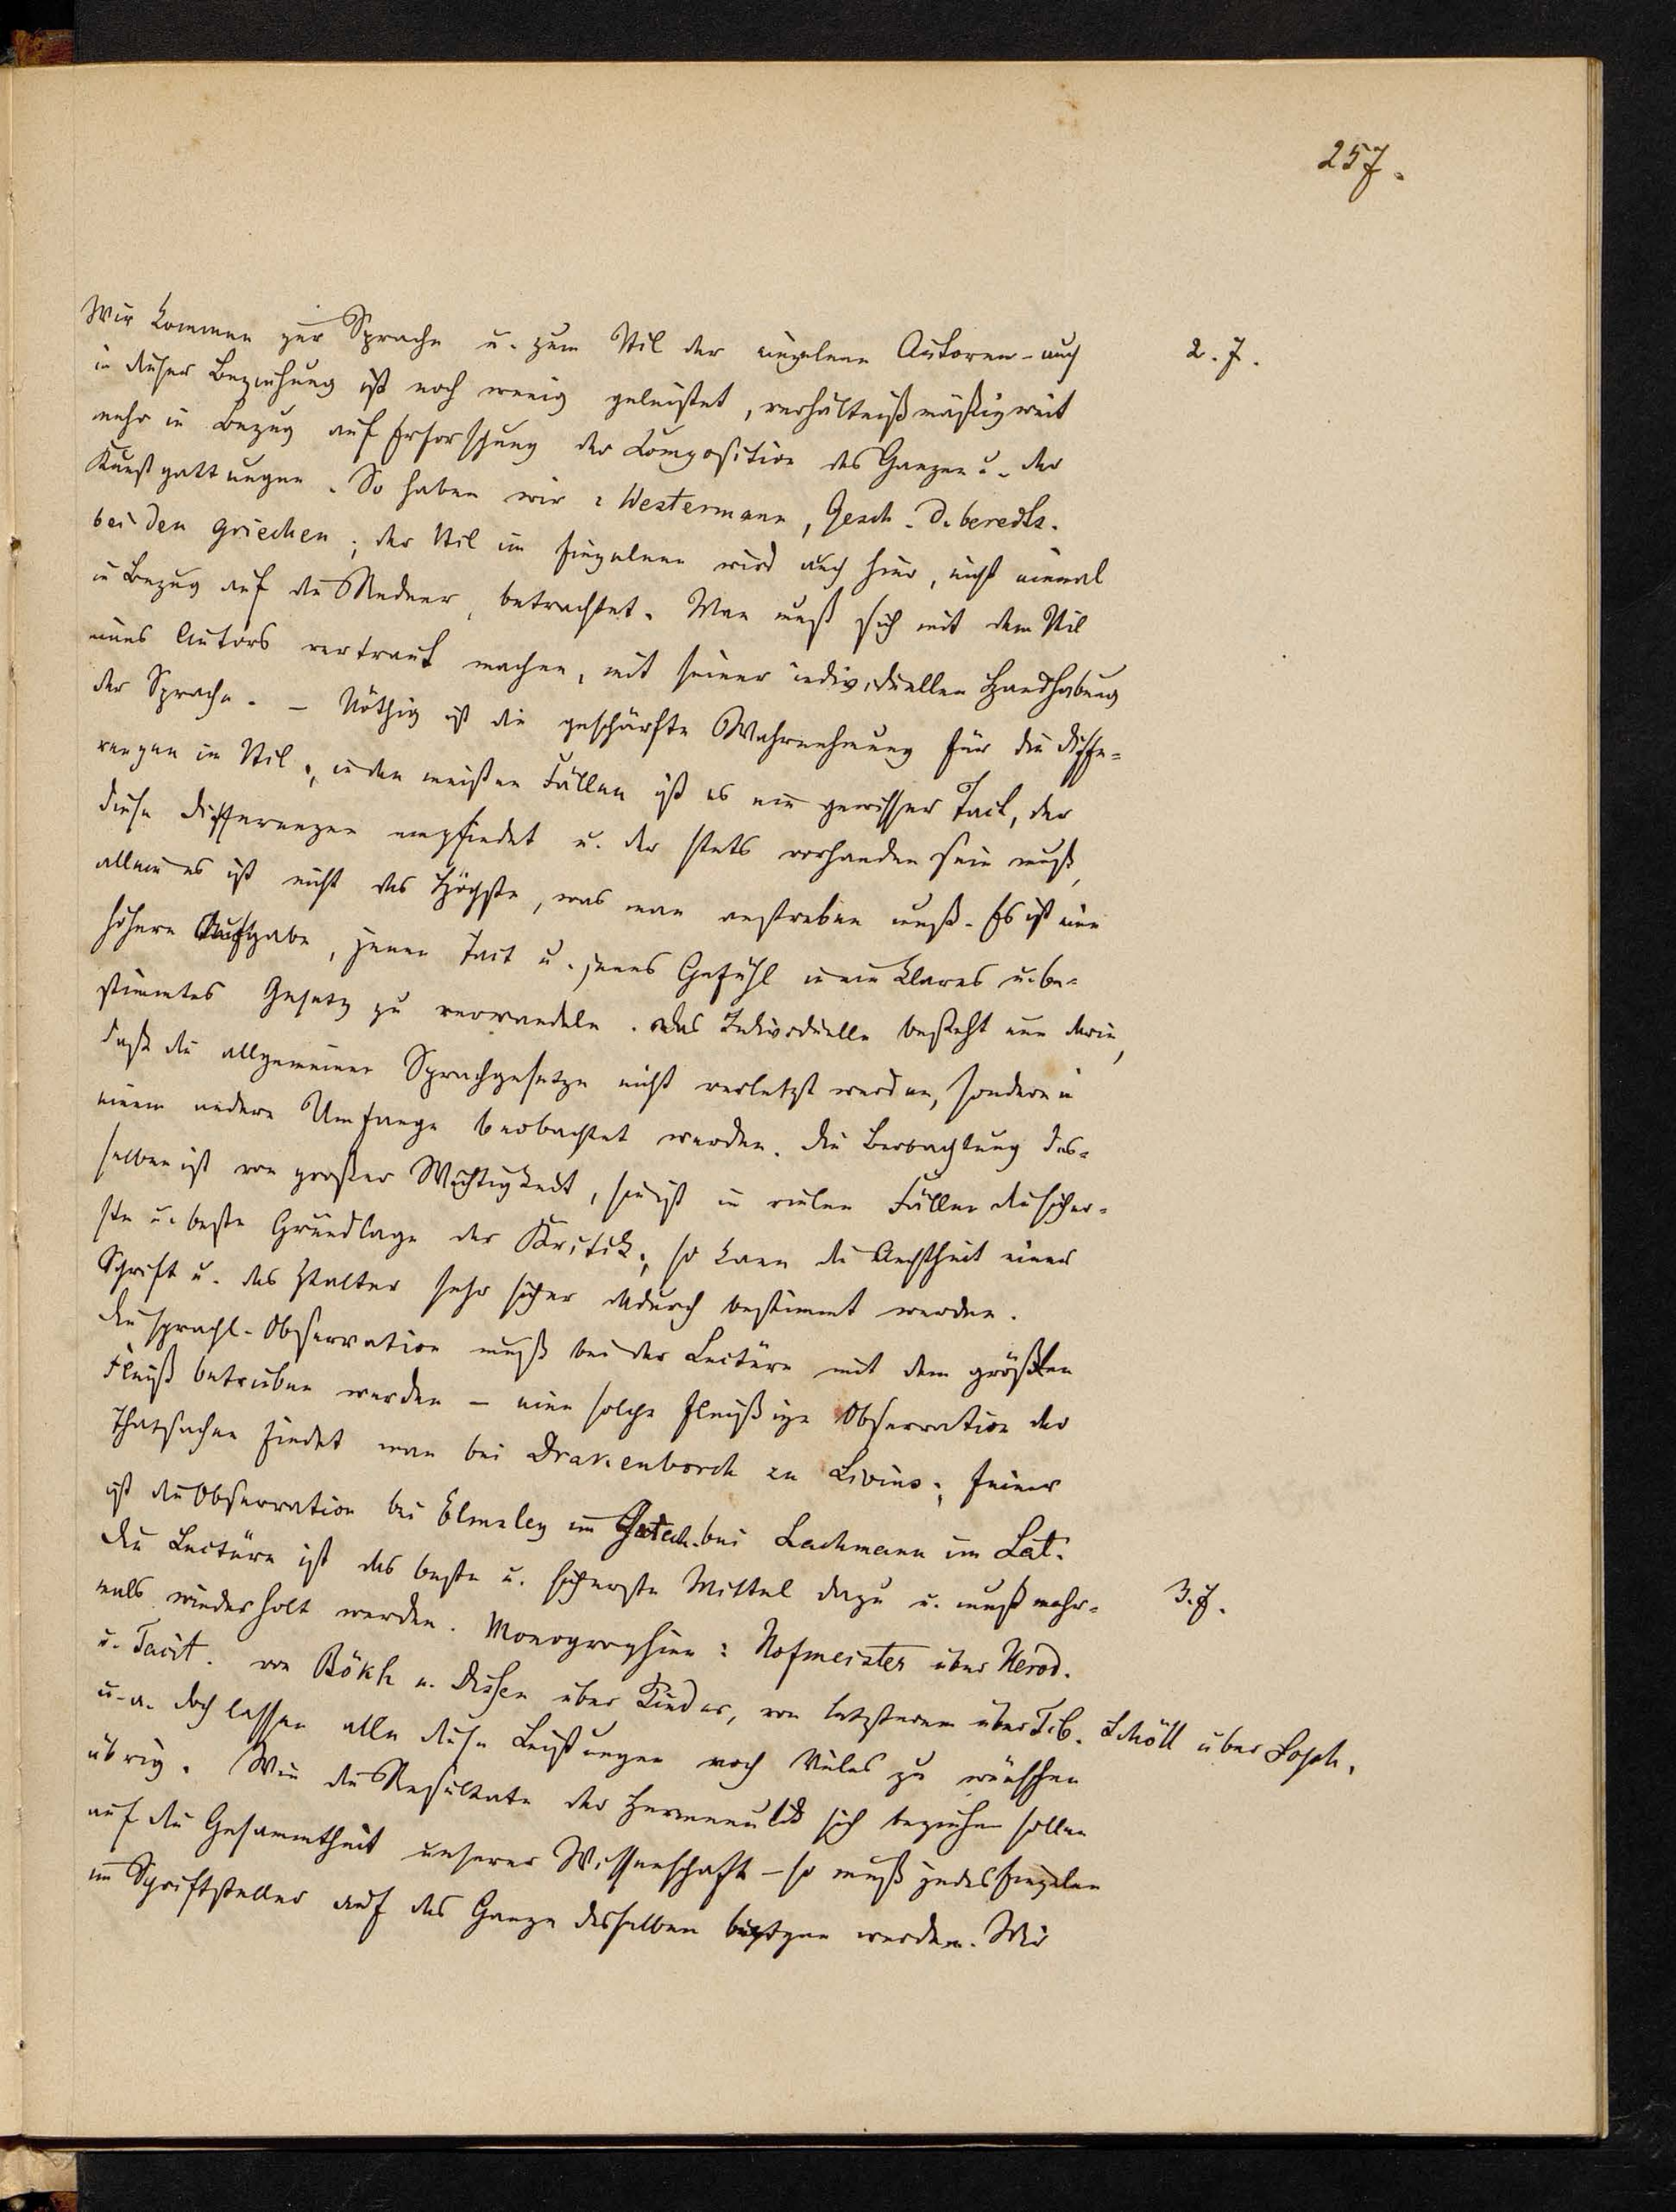 257.
Wir kommen zur Sprache u. zum Stil der einzelnen Autoren – auch
2.7.
in dieser Beziehung ist noch wenig geleistet, verhältnißmäßig weit
mehr in Bezug auf Erforschung der Composition des Ganzen u. der
Kunstgattungen. So haben wir: Westermann, Gesch. d. beredts.
bei den Griechen; der Stil im Einzelnen wird auch hier, nicht einmal
in Bezug auf die Redner, betrachtet. Man muß sich mit dem Stil
eines Autors vertraut machen, mit seiner individuellen Handhabung
der Sprache. – Nöthig ist die geschärfte Wahrnehmung für die Diffe-
renzen im Stil; in den meisten Fällen ist es ein gewisser Tact, der
diese Differenzen empfindet u. der stets vorhanden sein muß,
allein es ist nicht das Höchste, was man anstreben muß. Es ist eine
höhere Aufgabe, jenen Tact u. jenes Gefühl in ein klares u. be-
stimmtes Gesetz zu verwandeln. Das Individuelle besteht nun darin,
daß die allgemeinen Sprachgesetze nicht verletzt werden, sondern in
einem andern Umfange beobachtet werden. Die Beobachtung des-
selben ist von großer Wichtigkeit, sie ist in vielen Fällen die sicher-
ste u. beste Grundlage der Kritik; so kann die Aechtheit einer
Schrift u. das Ztalter sehr sicher dadurch bestimmt werden.
Die sprachl. Observation muß bei der Lectüre mit dem größten
Fleiß betrieben werden – eine solche fleißige Observation der
Thatsachen findet man bei Drakenborch zu Livius; feiner
ist die Observation bei Elmsley im Griech. bei Lachmann im Lat.
Die Lectüre ist das beste u. sicherste Mittel dazu u. muß mehr-
3.7.
mals wiederholt werden. Monographien: Hofmeister über Herod.
u. Tacit. von Bökh u. Dissen über Pindar, von letzterem über Tib. Schöll über Soph.
u. a. Doch lassen alle diese Leistungen noch Vieles zu wünschen
übrig. Wie die Resultate der Hermeneutik sich beziehen sollen
auf die Gesammtheit unserer Wissenschaft – so muß jedes Einzelne
im Schriftsteller auf das Ganze desselben bezogen werden. Wir